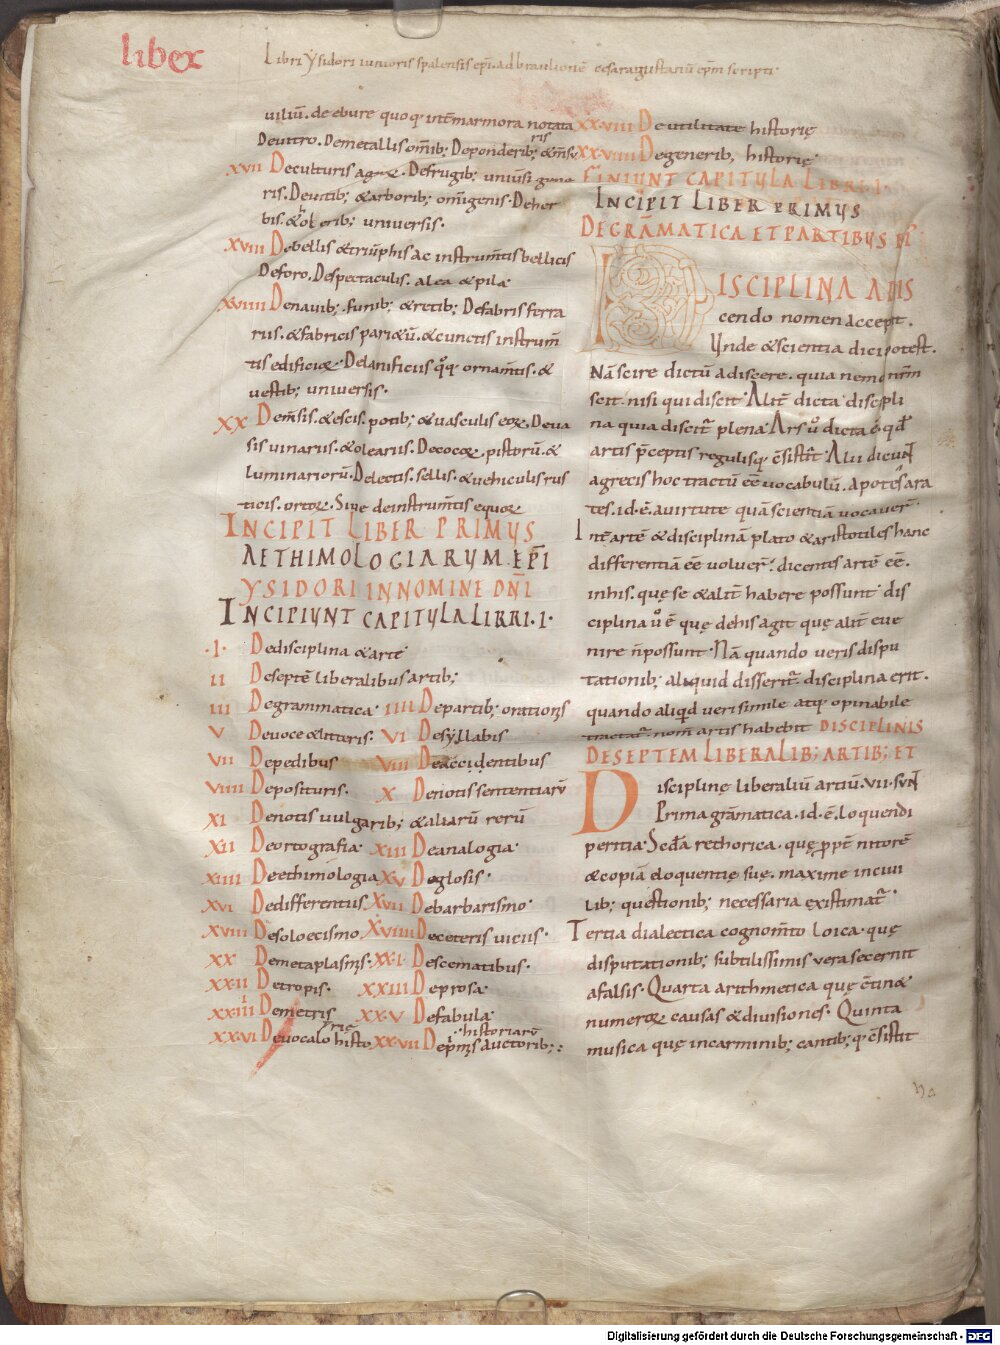 liber
Libri ysidori iunioris spalensis epi. ad braulionē cesaraugustanū epm̄ scripti
uiliū. de ebure quoq; int̄ marmora notata
De uitro. De metallis om̄ib; De ponderib; & m̄suris
XVII De culturis agrorꝝ. De frugib; uniuersi gene
ris. De uitib; & arborib; om̄igenis. De her
bis. & olerib; uniuersis.
XVIII De bellis & triūphis ac instrum̄tis bellicis
De foro. De spectaculis. alea & pila
XVIIII De nauib; funib; & retib; De fabris ferra
riis. & fabricis parietū. & cunctis instrum̄
tis edificiorꝝ. De lanificiis q̊q; ornam̄tis. &
uestib; uniuersis.
XX De m̄sis. & escis. potib; & uasculis eorꝝ. De ua
sis uinariis. & oleariis. De cocorꝝ. pistorū. &
luminariorū. De lectis. sellis. & uehiculis rus
ticis. ortorꝝ. Siue de instrum̄tis equorꝝ
INCIPIT LIBER PRIMUS
AETHIMOLOGIARUM. EPĪ
YSIDORI IN NOMINE DN̄I
INCIPIUNT CAPITULA LIBRI. I.
.I. De disciplina & arte
II De septē liberalibus artib;
III De grammatica. IIII De partib; orationis
V De uoce & litteris. VI De syllabis
VII De pedibus VIII De accidentibus
VIIII De posituris. X De notis sententiarū
XI De notis uulgarib; & aliarū rerū
XII De ortografia XIII De analogia.
XIIII De ethimologia XV De glosis.
XVI De differentiis XVII De barbarismo.
XVIII De soloecismo XVIIII De ceteris uiciis.
XX De metaplasmis. XXI De scematibus.
XXII De tropis. XXIII De prosa
XXIIII De metris XXV De fabula
historiarū
XXVI De uocabulo historię XXVII De primis auctorib;
XXVIII De utilitate historię
XXVIIII De generib; historię
FINIUNT CAPITULA LIBRI. I.
INCIPIT LIBER PRIMUS
DE GRĀMATICA ET PARTIBUS EI'
DISCIPLINA A DIS
cendo nomen accepit.
Unde & scientia dici potest.
Nā scire dictū a discere. quia nemo nr̄m
scit. nisi qui discit. Alit̄ dicta discipli
na quia discit̄ plena. Ars ů dicta ē qd̄
artis p̄ceptis regulisq; c̄sistat. Alii dicunt
a grecis hoc tractū eē uocabulū. apo tes ara
tes. id. ē. a uirtute quā scientiā uocauer̄
Int̄ artē & disciplinā plato & aristotiles hanc
differentiā eē uoluer̄. dicentes artē eē.
in his. quę se & alit̄ habere possunt. dis
ciplina ů ē quę de his agit quę alit̄ eue
nire n̄ possunt. Nā quando ueris dispu
tationib; aliquid disserit̄ disciplina erit.
quando aliq̄d uerisimile atq; opinabile
tractat̄. nom̄ artis habebit DISCIPLINIS
DE SEPTEM LIBERALIB; ARTIB; ET
Disciplinę liberaliū artiū. VII. sunt
Prima grāmatica. id. ē. loquendi
peritia. Secd̄a rethorica. quę ꝓpt̄ nitorē
& copiā eloquentię suę. maxime in ciui
lib; questionib; necessaria existimat̄
Tertia dialectica cognom̄to loica. quę
disputationib; subtilissimis uera secernit
a falsis. Quarta arithmetica quę c̄tin&
numerorꝝ causas & diuisiones. Quinta
musica quę in carminib; cantib;q; c̄sistit
Digitalisierung gefördert durch die Deutsche Forschungsgemeinschaft - DFG